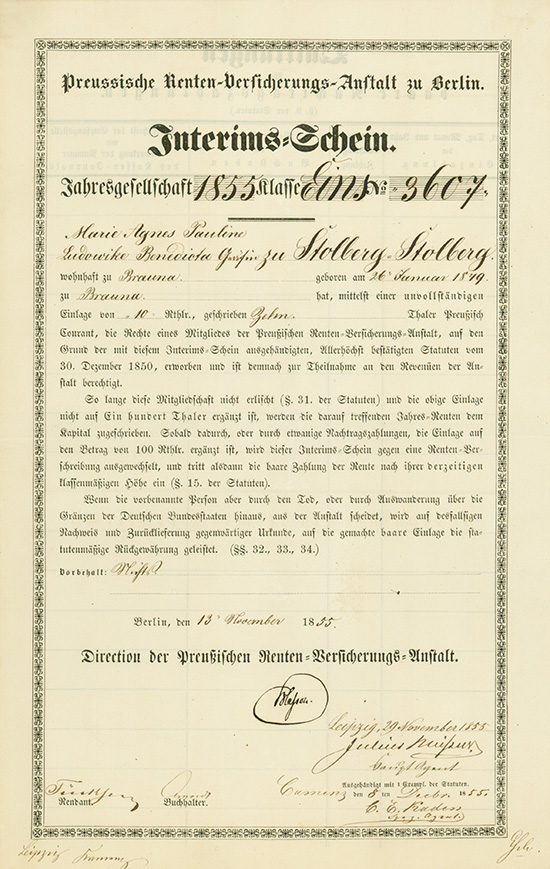 Preussische Renten-Versicherungs-Anstalt zu Berlin.
Interims-Schein.
Jahresgesellschaft 1855 Klasse Eins No. 3607.
Marie Agnes Pauline
Ludowike Benedicta Gräfin zu Stolberg-Stolberg.
wohnhaft zu Brauna geboren am 26 Januar 1849
zu Brauna. hat, mittelst einer unvollständigen
Einlage von 10. Rthlr., geschrieben Zehn. Thaler Preußisch
Courant, die Rechte eines Mitgliedes der Preußischen Renten-Versicherungs-Anstalt, auf den
Grund der mit diesem Interims-Schein ausgehändigten, Allerhöchst bestätigten Statuten vom
30. Dezember 1850, erworben und ist demnach zur Theilnahme an den Revenüen der An-
stalt berechtigt.
So lange diese Mitgliedschaft nicht erlischt (§. 31. der Statuten) und die obige Einlage
nicht auf Ein hundert Thaler ergänzt ist, werden die darauf treffenden Jahres-Renten dem
Kapital zugeschrieben. Sobald dadurch, oder durch etwanige Nachtragszahlungen, die Einlage auf
den Betrag von 100 Rthlr. ergänzt ist, wird dieser Interims-Schein gegen eine Renten-Ver-
schreibung ausgewechselt, und tritt alsdann die baare Zahlung der Rente nach ihrer derzeitigen
klassenmäßigen Höhe ein (§. 15. der Statuten).
Wenn die vorbenannte Person aber durch den Tod, oder durch Auswanderung über die
Gränzen der Deutschen Bundesstaaten hinaus, aus der Anstalt scheidet, wird auf desfallsigen
Nachweis und Zurücklieferung gegenwärtiger Urkunde, auf die gemachte baare Einlage die sta-
tutenmäßige Rückgewährung geleistet. (§§. 32., 33., 34.)
Vorbehalt:
Berlin, den 13 November 1855.
Direction der Preußischen Renten-Versicherungs-Anstalt.
Leipzig, 29 November 1855
Julius
Haupt Agent
Ausgehändigt mit 1 Exempl. der Statuten.
Camenz den 8 ten Decbr. 1855.
Rendant. Buchhalter. C. E. Raden
Agent
Leipzig Kamenz